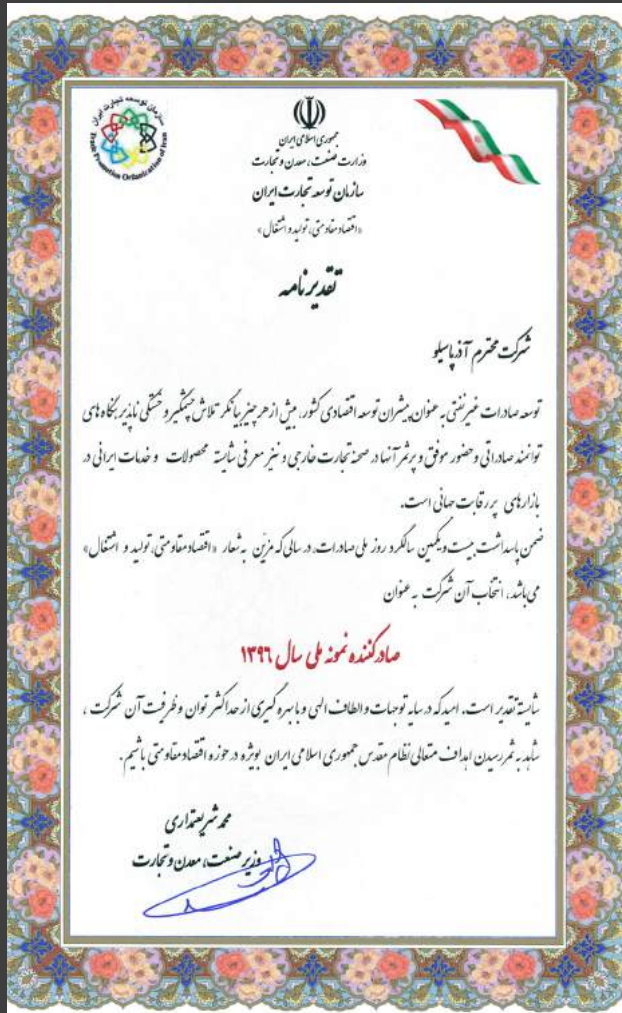 سازمان توسعه تجارت ایران
Trade Promotion Organization of Iran
جمهوری اسلامی ایران
وزارت صنعت، معدن و تجارت
سازمان توسعه تجارت ایران
«اقتصاد مقاومتی، تولید و اشتغال»
تقدیرنامه
شرکت محترم آذرپاسیلو
توسعه صادرات غیرنفتی به عنوان پیشران توسعه اقتصادی کشور، بیش از هر چیز بیانگر تلاش چشمگیر و خستگی ناپذیر بنگاه های
توانمند صادراتی و حضور موفق و پرثمر آنها در صحنه تجارت خارجی و نیز معرفی شایسته محصولات و خدمات ایرانی در
بازارهای پر رقابت جهانی است.
ضمن پاسداشت بیست و یکمین سالگرد روز ملی صادرات، در سالی که مزین به شعار «اقتصاد مقاومتی، تولید و اشتغال»
می باشد، انتخاب آن شرکت به عنوان
صادرکننده نمونه ملی سال ۱۳۹۶
شایسته تقدیر است. امید که در سایه توجهات و الطاف الهی و با بهره گیری از حداکثر توان و ظرفیت آن شرکت،
شاهد به ثمر رسیدن اهداف متعالی نظام مقدس جمهوری اسلامی ایران بویژه در حوزه اقتصاد مقاومتی باشیم.
محمد شریعتمداری
وزیر صنعت، معدن و تجارت